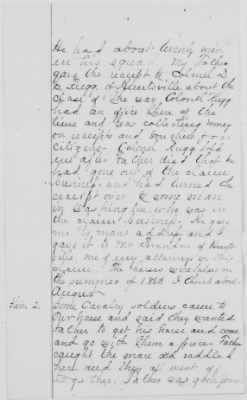 He had about twenty men
in his squad. My father
gave the receipt to Colonel D.
C. Lugg, of Huntsville about the
close of the war. Colonel Lugg
had an office there at the
time and was collecting money
on receipts and vouchers for
citizens. Colonel Lugg told
me after father died that he
had gone out of the claim
business and had turned the
receipt over to some man
in Washington who was in
the claim business. He gave
me the mans address, and I
gave it to Mr of Hunts-
ville, one of my attorneys in this
claim. The horses were taken in
the summer of 1863 I think about
August
Item 2. Some Cavalry soldiers came to
our house and said they wanted
father to get his horse and come
and go with them a piece. Father
caught the mare and saddled
her and they all went off
together. Father was gone four